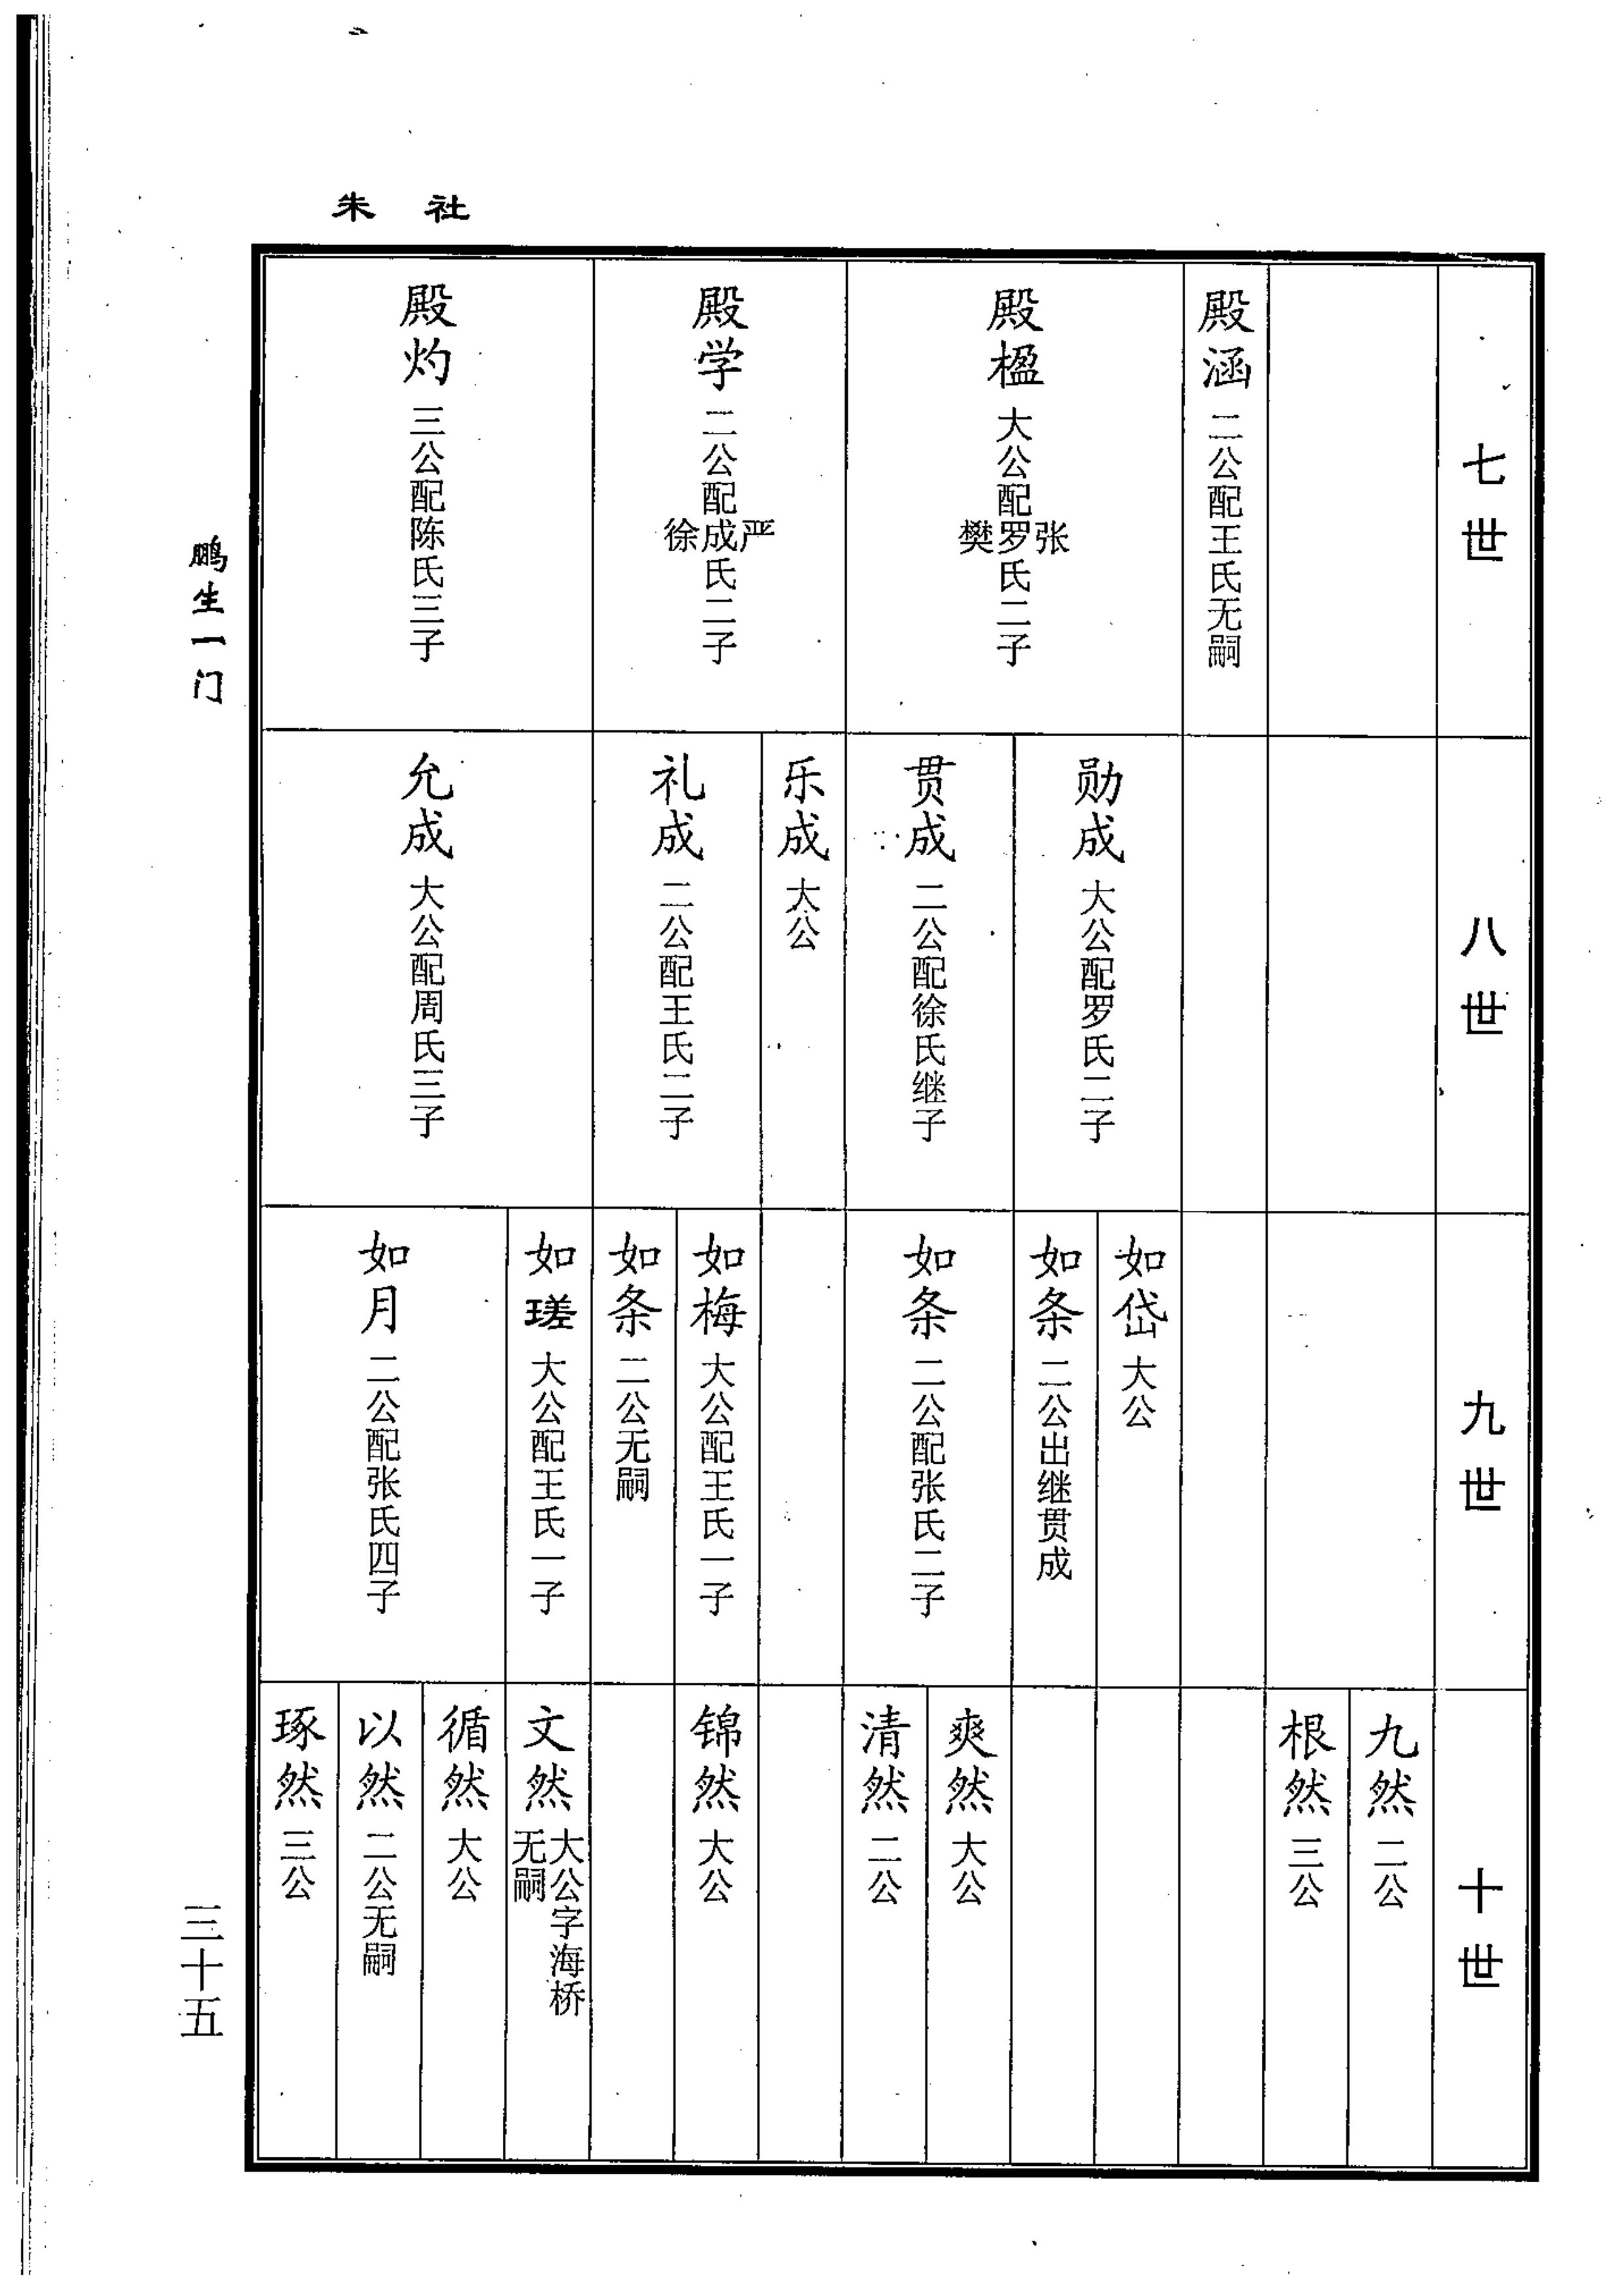 社朱
七世
殿涵 二公配王氏无嗣
殿楹 大公配张罗樊氏二子
殿学 二公配严成徐氏二子
殿灼 三公配陈氏三子
八世
勋成 大公配罗氏二子
贯成 二公配徐氏继子
乐成 大公
礼成 二公配王氏二子
允成 大公配周氏三子
九世
如岱 大公
如条 二公出继贯成
如条 二公配张氏二子
如梅 大公配王氏一子
如条 二公无嗣
如瑳 大公配王氏一子
如月 二公配张氏四子
十世
九然 二公
根然 三公
爽然 大公
清然 二公
锦然 大公
文然 大公字海桥无嗣
循然 大公
以然 二公无嗣
琢然 三公
鹏生一门
三十五